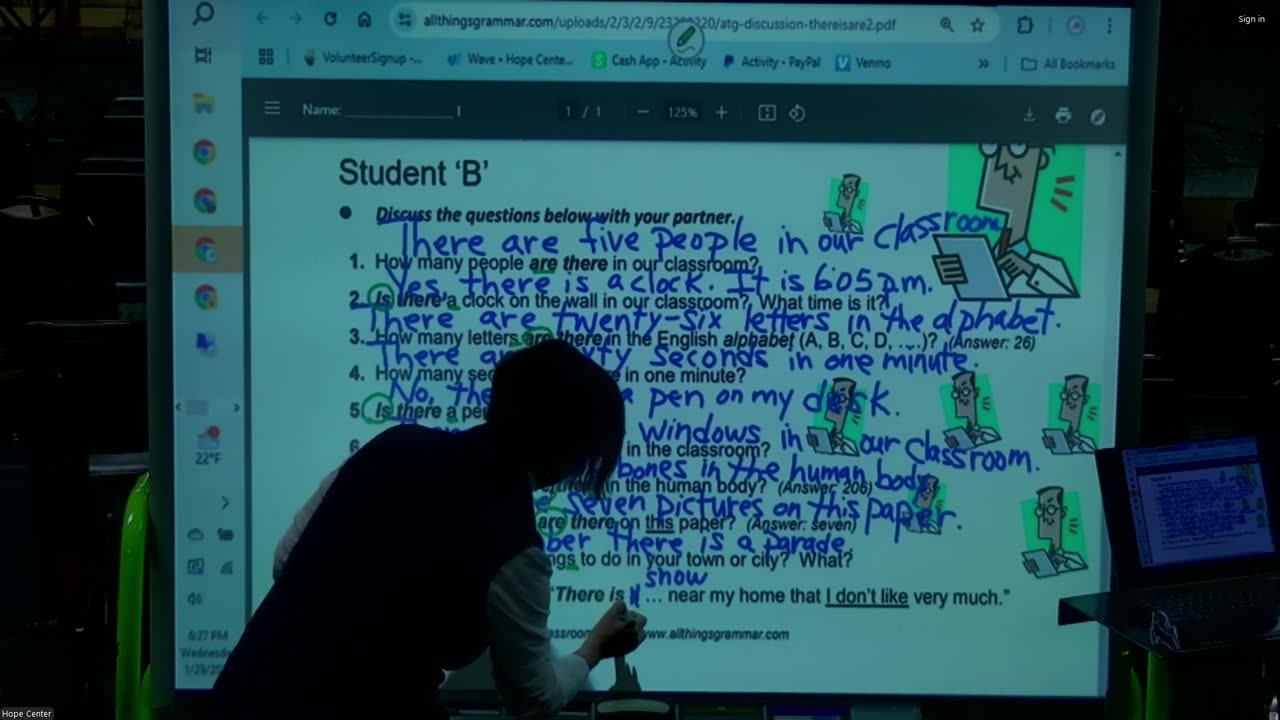 Sign in
allthingsgrammar.com/uploads/2/3/2/9/23290220/atg-discussion-thereisare2.pdf
VolunteerSignup -... Wave • Hope Cente... Cash App - Activity Activity - PayPal Venmo » All Bookmarks
Name: 1 / 1 — 125% +
Student ‘B’
Discuss the questions below with your partner.
There are five people in our classroom.
1. How many people are there in our classroom?
Yes, there is a clock. It is 6:05 p.m.
2. Is there a clock on the wall in our classroom? What time is it?
There are twenty-six letters in the alphabet.
3. How many letters are there in the English alphabet (A, B, C, D, ...)? (Answer: 26)
There seconds in one minute.
4. How many in one minute?
No, a pen on my desk.
5 Is there a
windows in our classroom.
in the classroom?
bones in the human body
in the human body? (Answer: 206)
seven pictures on this paper.
are there on this paper? (Answer: seven)
there is a parade.
to do in your town or city? What?
show
"There is ... near my home that I don't like very much."
www.allthingsgrammar.com
22°F
6:27 PM
Wednesday
Hope Center